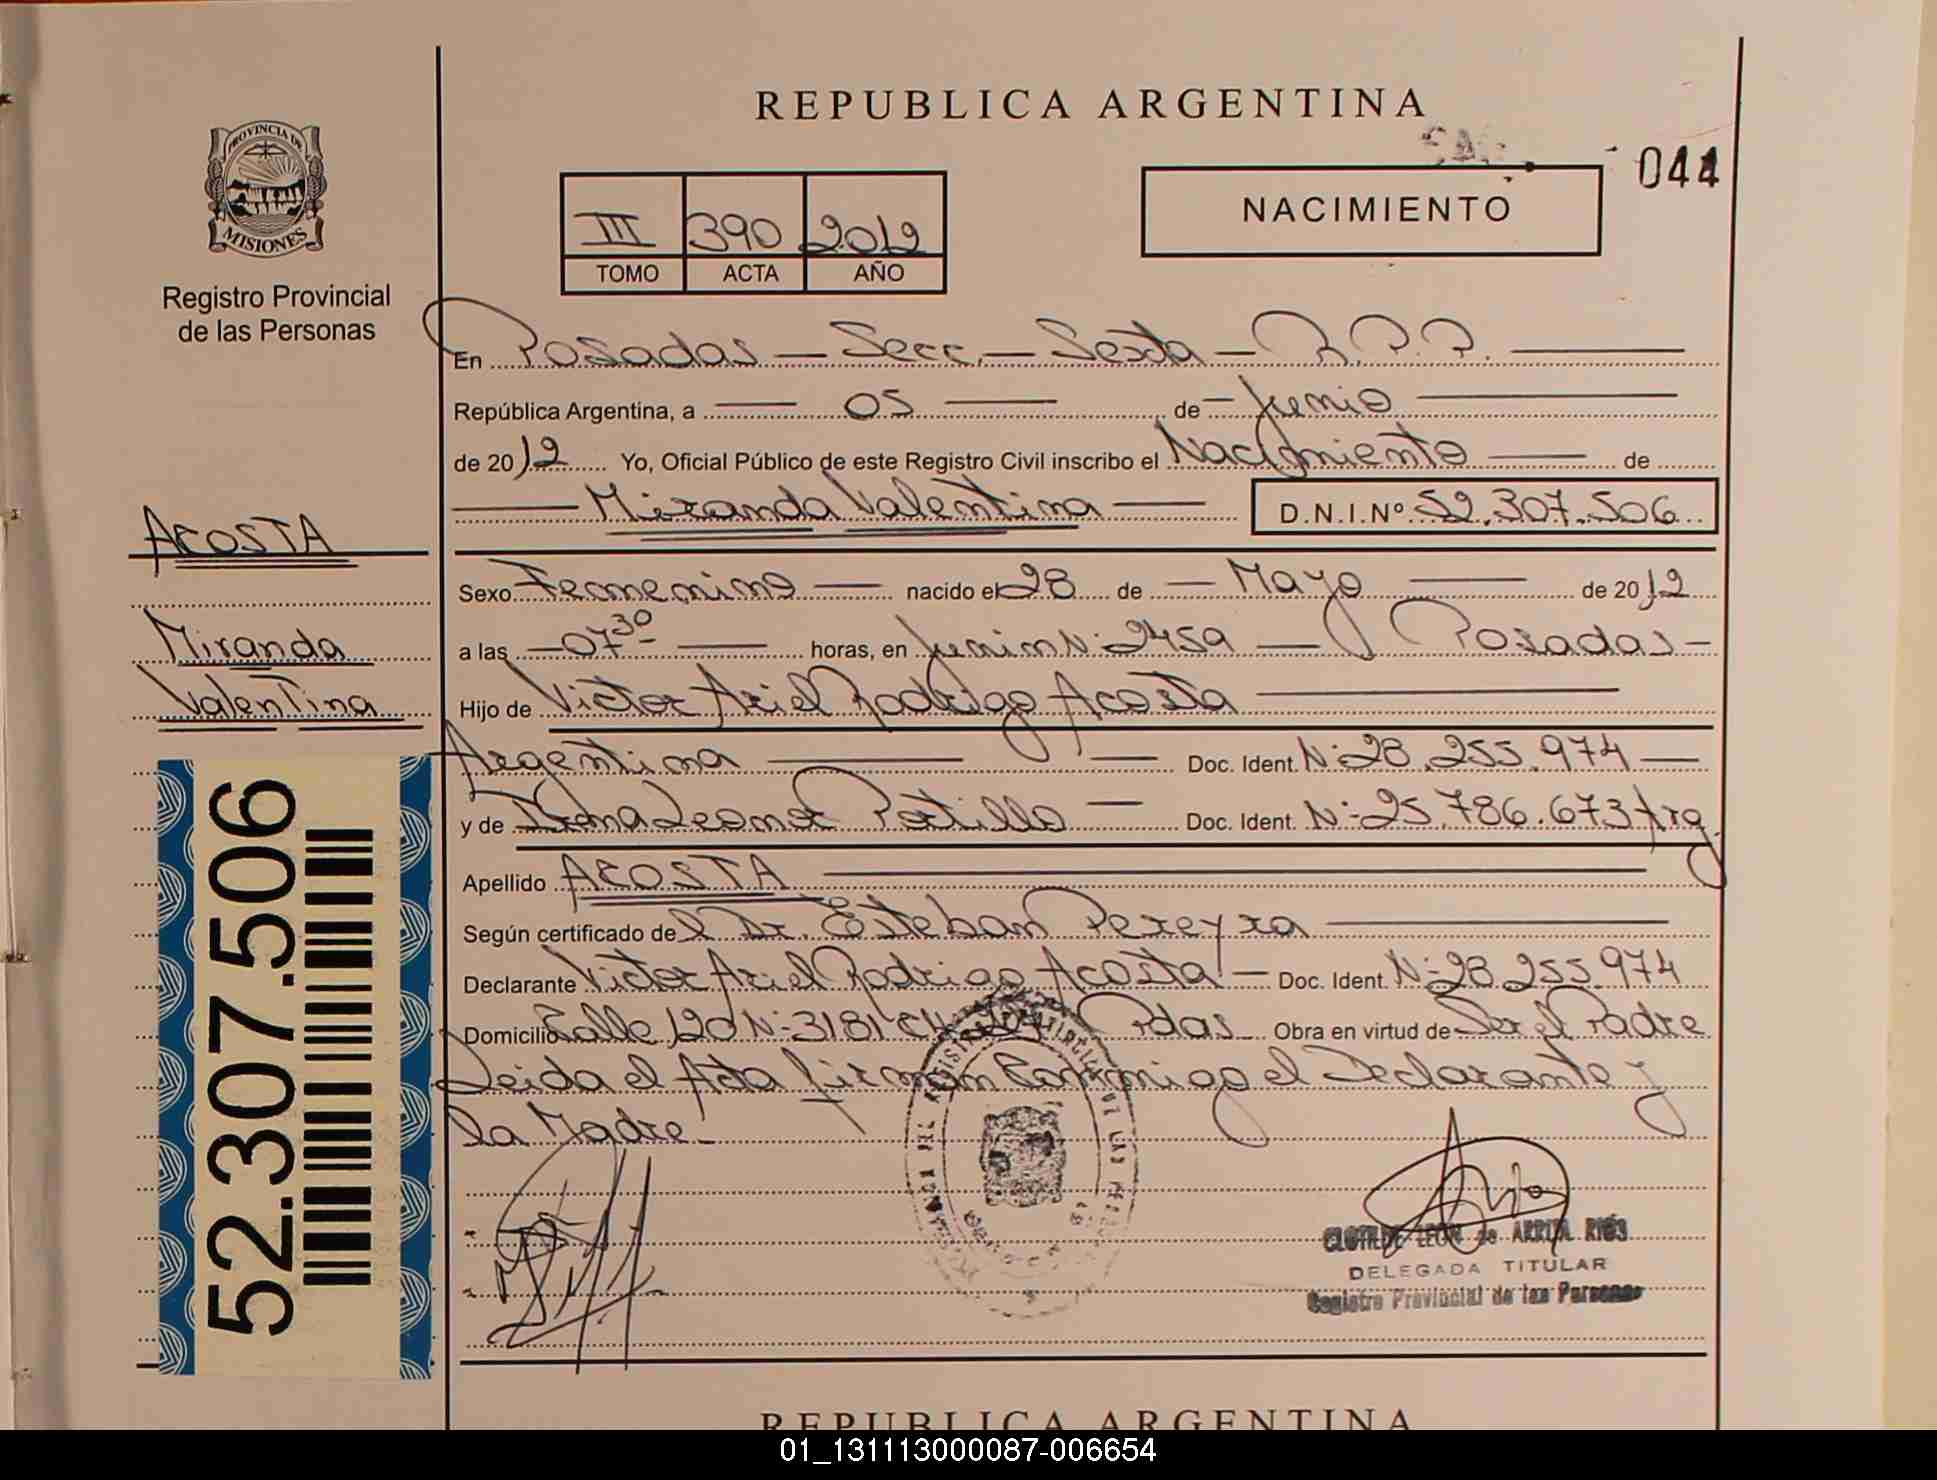 REPUBLICA ARGENTINA
PROVINCIA DE
MISIONES
Registro Provincial
de las Personas
III 390 2012
TOMO ACTA AÑO
NACIMIENTO
044
En Posadas - Secc. - Sexta - R.P.P.
República Argentina, a 05 de Junio
de 2012 Yo, Oficial Público de este Registro Civil inscribo el Nacimiento de
Miranda Valentina D.N.I.Nº 52.307.506
ACOSTA
Miranda
Valentina
52.307.506
Sexo Femenino nacido el 28 de Mayo de 2012
a las 07 30 horas, en Junin N: 2459 - Posadas -
Hijo de Victor Ariel Rodrigo Acosta
Argentina Doc. Ident. N: 28.255.974
y de Leonor Portillo Doc. Ident. N: 25.786.673 Arg.
Apellido ACOSTA
Según certificado del Dr. Esteban Pereyra
Declarante Victor Ariel Rodrigo Acosta - Doc. Ident. N: 28.255.974
Domicilio Calle 120 N: 3181 Pdas Obra en virtud de Ser el Padre
Leida el Acta firman Conmigo el Declarante y
la Madre.
CLOTILDE LEON de ARRUA RIOS
DELEGADA TITULAR
Registro Provincial de las Personas
REPUBLICA ARGENTINA
01_131113000087-006654